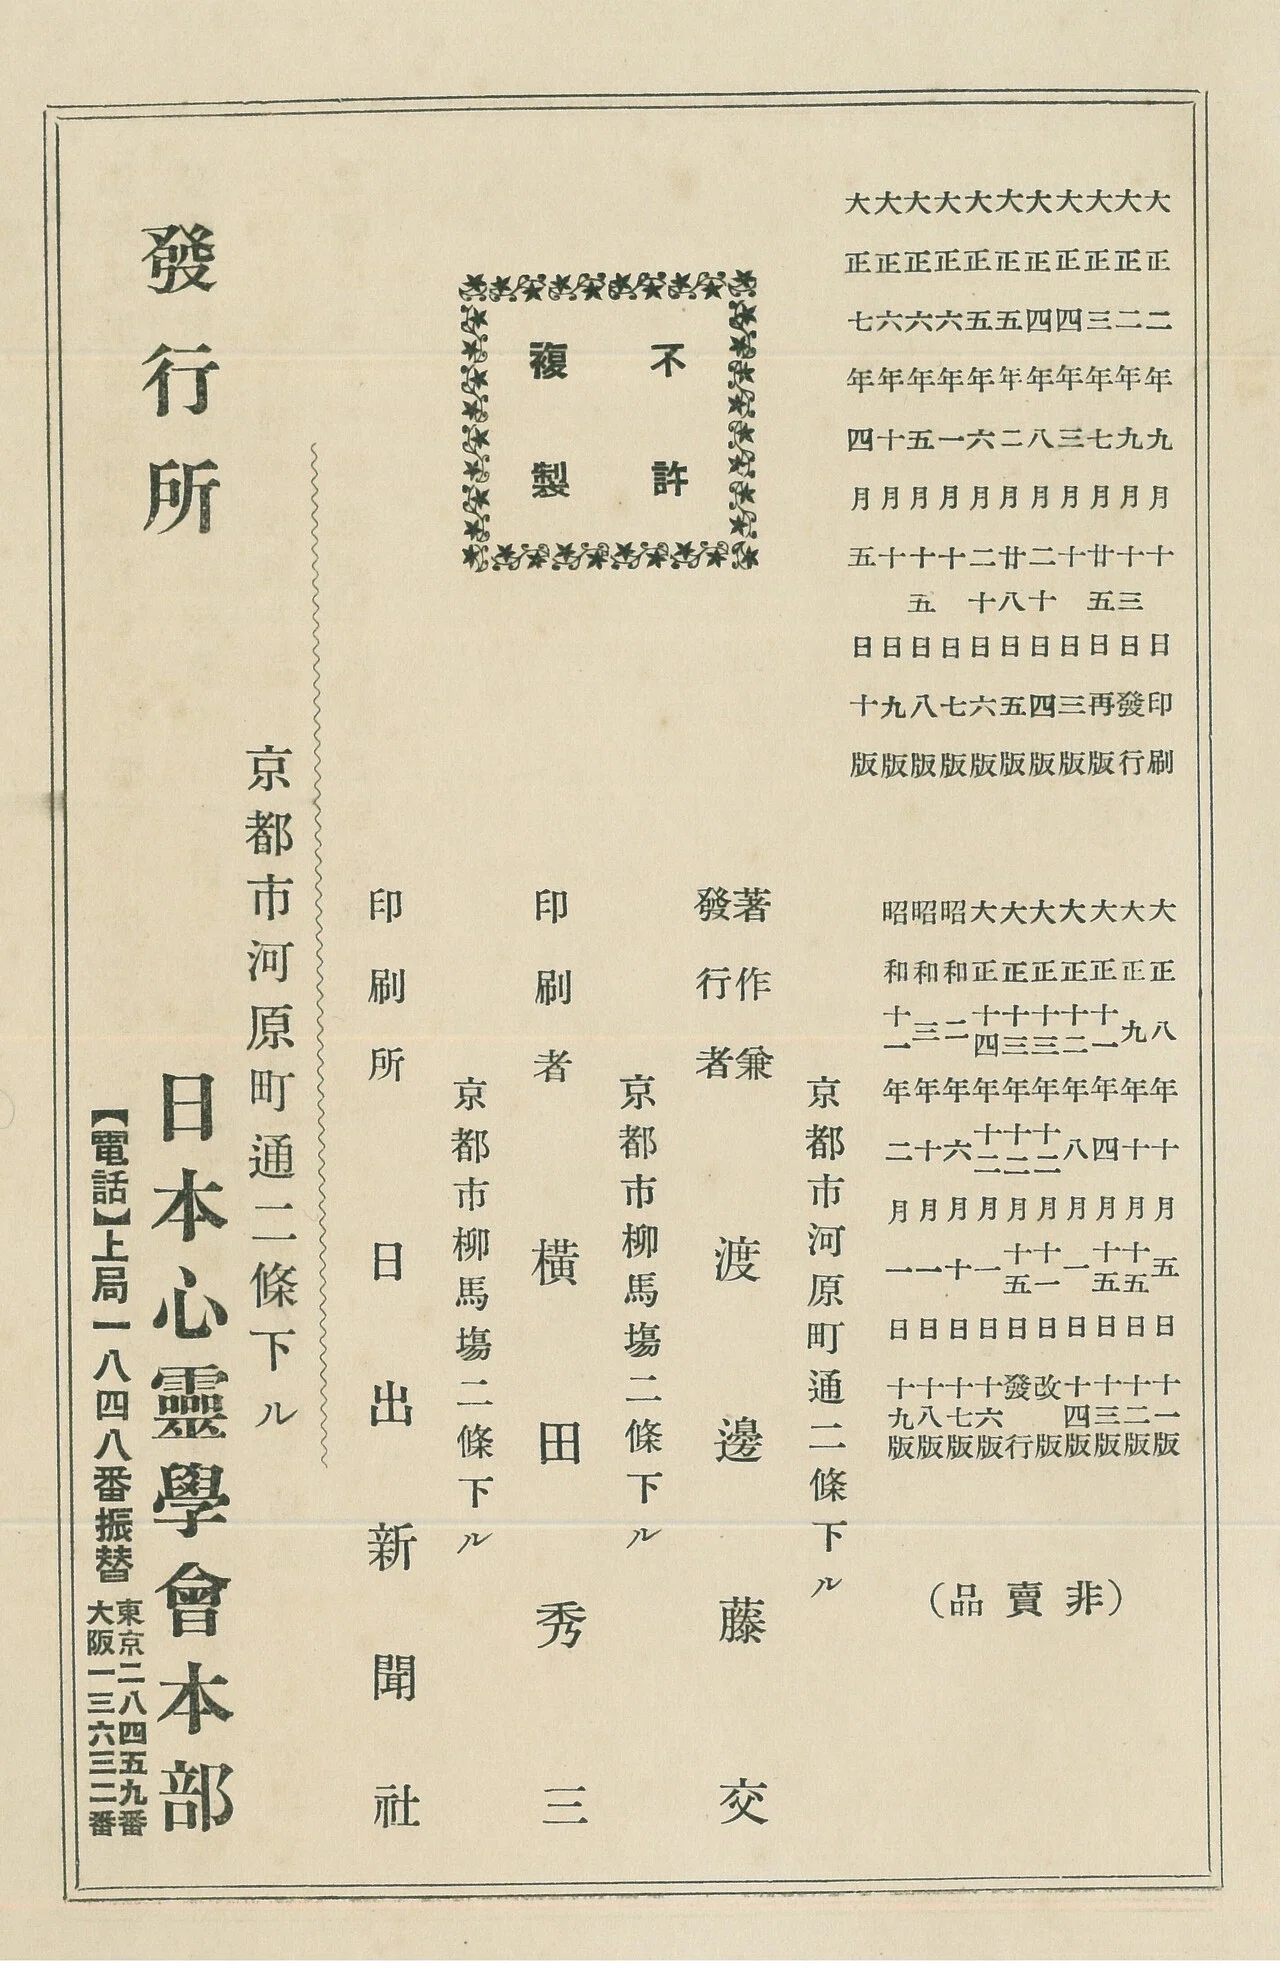 大正二年九月十日印刷
大正二年九月十三日發行
大正三年七月廿五日再版
大正四年三月十日三版
大正四年八月二十日四版
大正五年二月廿八日五版
大正五年六月二十日六版
大正六年一月十日七版
大正六年五月十五日八版
大正六年十月十日九版
大正七年四月五日十版
大正八年十月五日十一版
大正九年十月十五日十二版
大正十一年四月十五日十三版
大正十二年八月一日十四版
大正十三年十二月十一日改版
大正十三年十二月十五日發行
大正十四年十二月一日十六版
昭和二年六月十日十七版
昭和三年十月一日十八版
昭和十一年二月一日十九版
（非賣品）
不許
複製
京都市河原町通二條下ル
著作兼
發行者
渡邊藤交
京都市柳馬塲二條下ル
印刷者 橫田秀三
京都市柳馬塲二條下ル
印刷所 日出新聞社
京都市河原町通二條下ル
發行所 日本心靈學會本部
【電話】上局一八四八番振替
東京二八四五九番
大阪一三六三二番